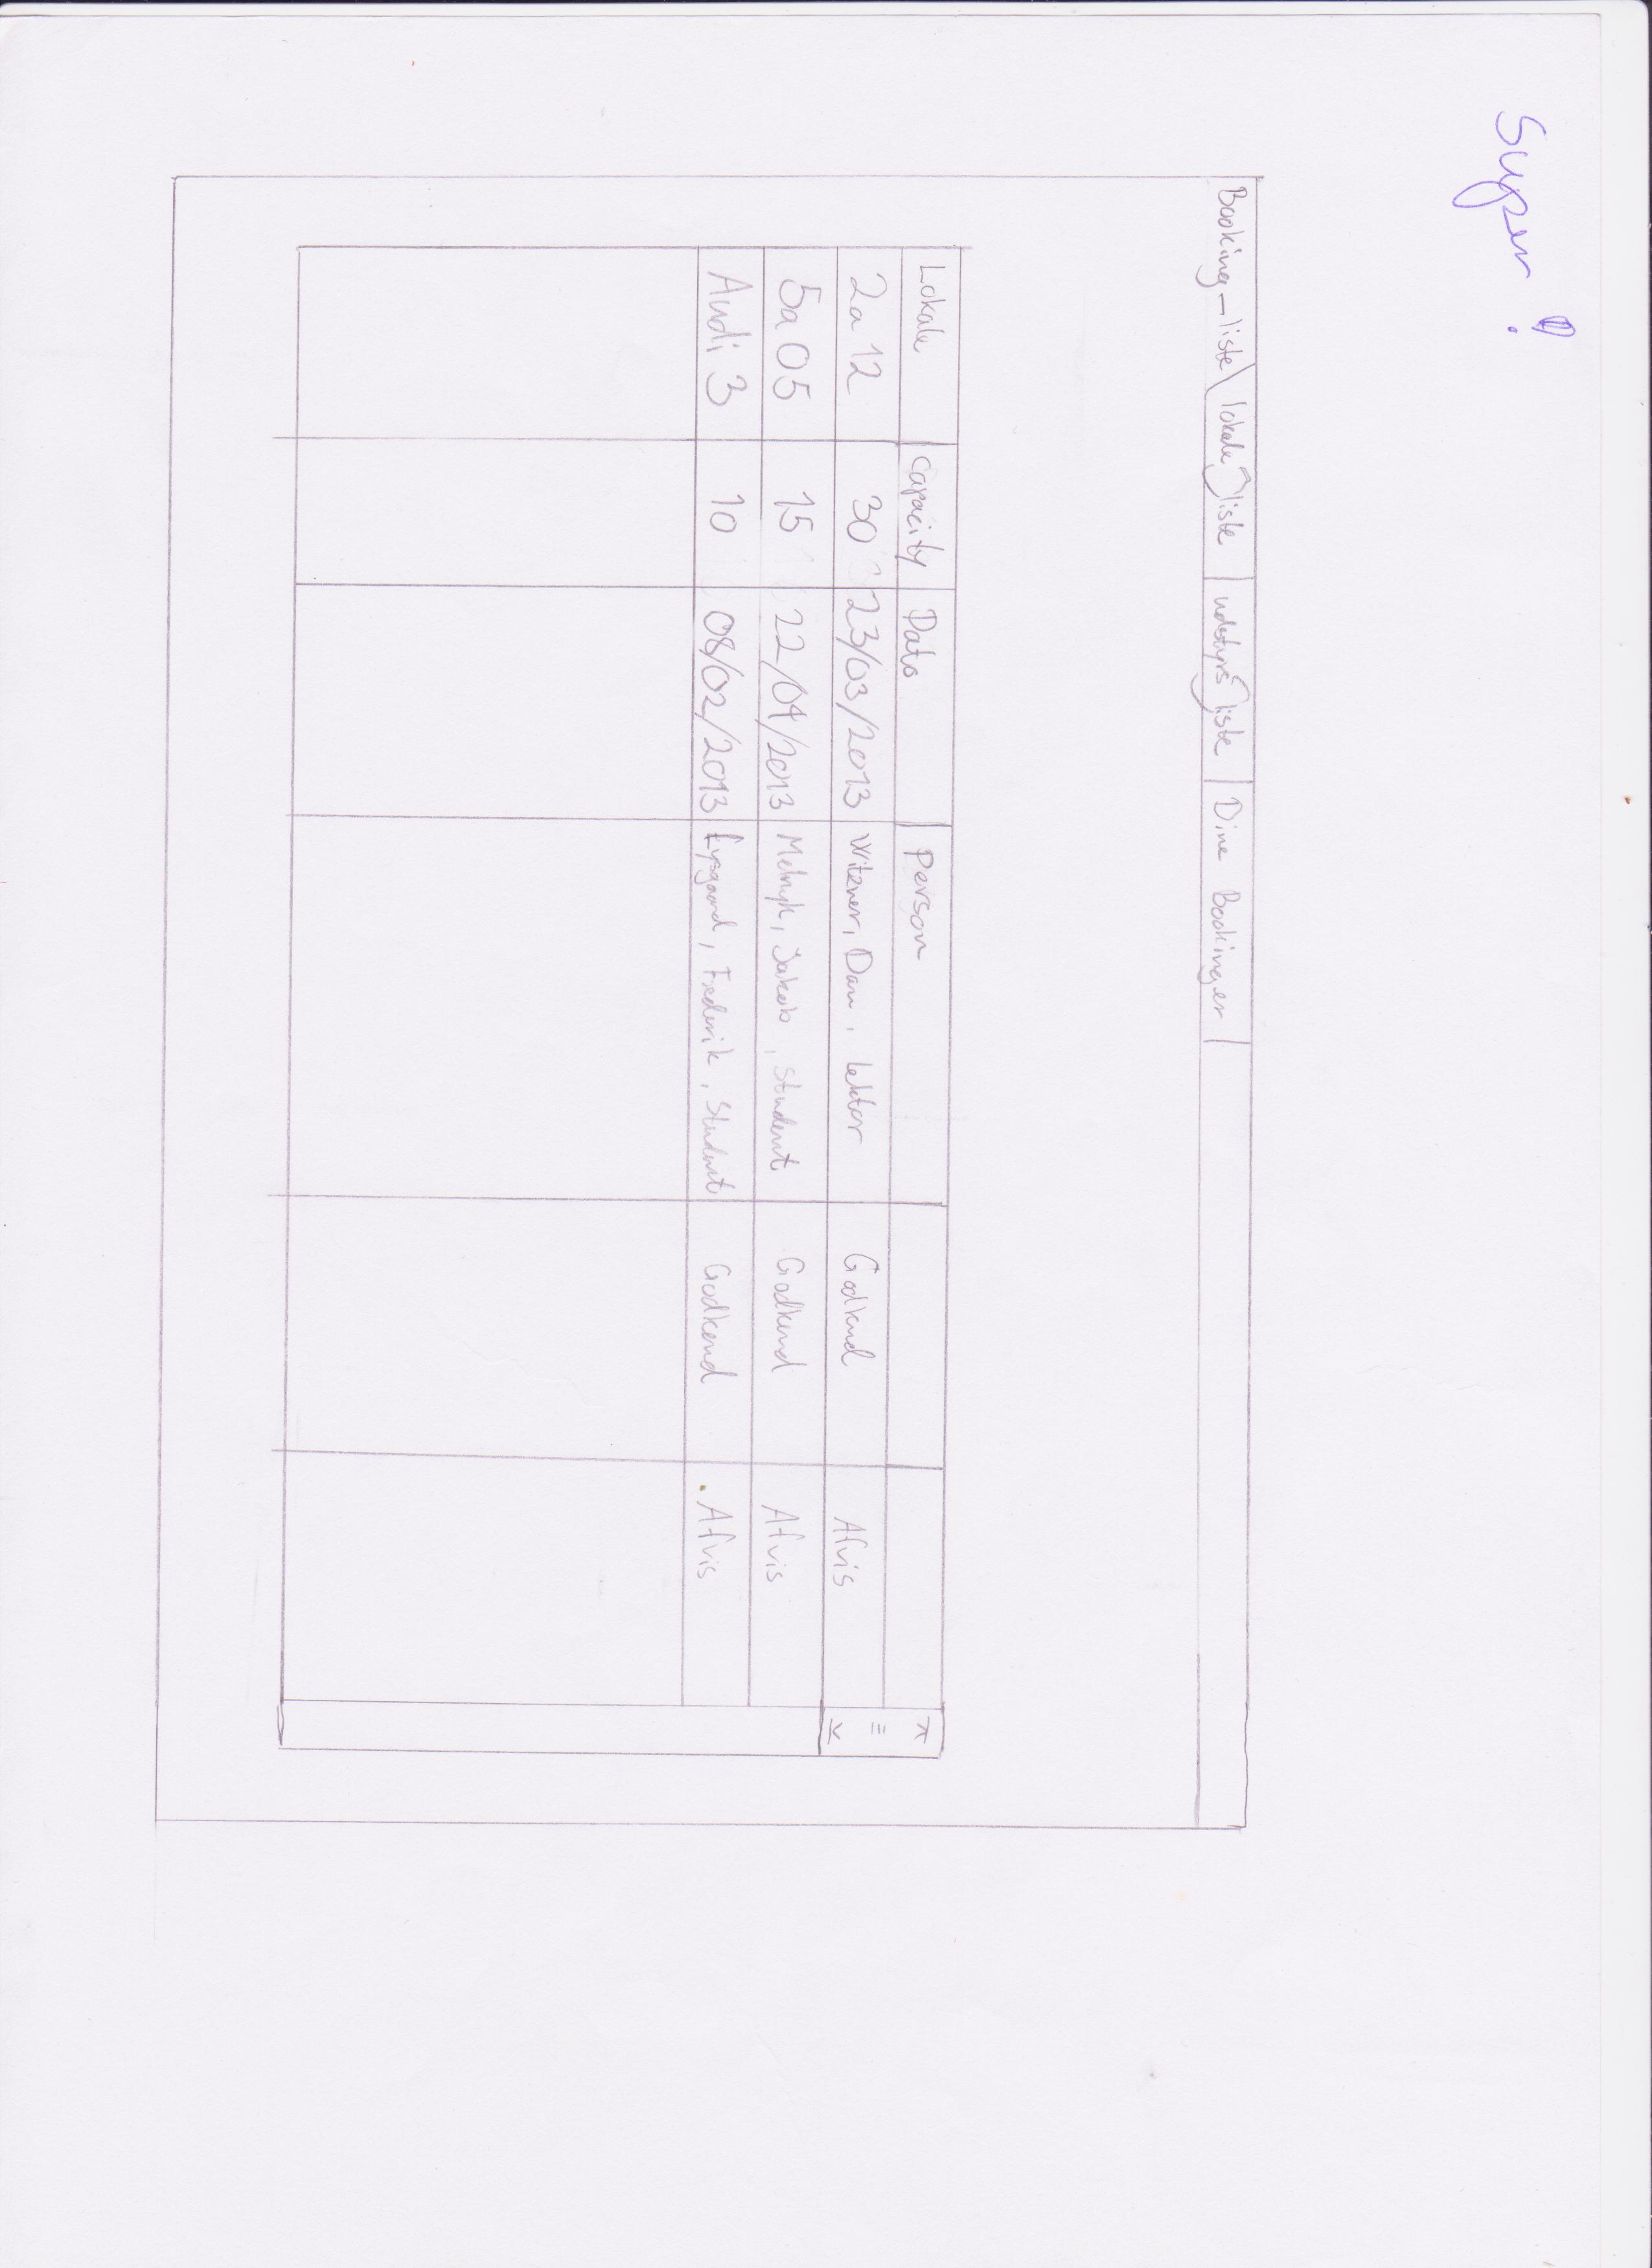 Super!
Booking-liste lokale liste udstyrs liste Dine Bookinger
Lokale Capacity Dato Person
2a12 30 23/03/2013 Witzner, Dan, lektor Godkend Afvis
5a05 15 22/04/2013 Melnyk, Jakob, Student Godkend Afvis
Audi 3 10 08/02/2013 Lysgaard, Frederik, Student Godkend Afvis